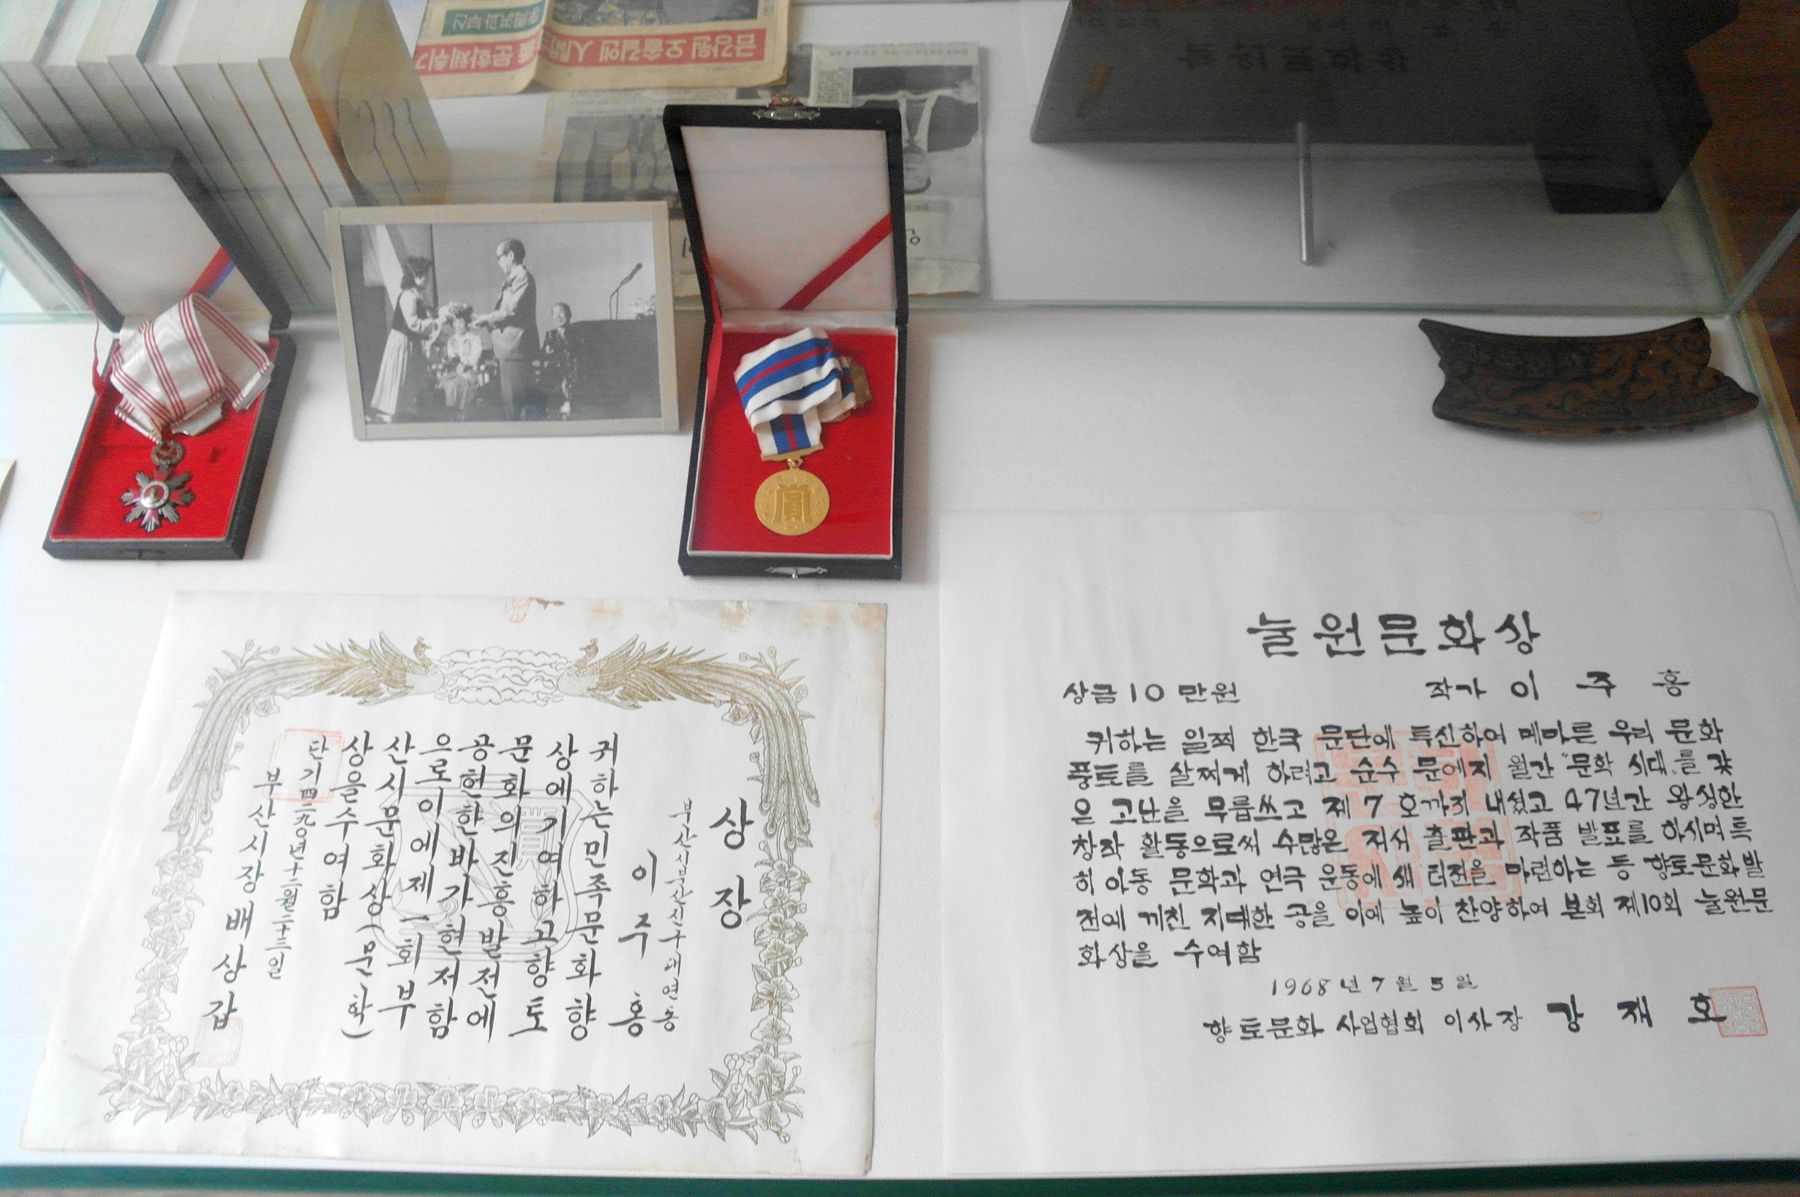 금강원 오솔길엔 人
문화체취
賞
상장
부산시부산진구대연동
이주홍
귀하는민족문화향
상에기여하고향토
문화의진흥발전에
공헌한바가현저함
으로이에제一회부
산시문화상(문학)
상을수여함
단기四二九〇년十二월二十三일
부산시장배상갑
눌원문화상
상금 10 만원
작가 이 주 홍
귀하는 일찍 한국 문단에 투신하여 메마른 우리 문화
풍토를 살찌게 하려고 순수 문예지 월간 문화 시대를 갖
은 고난을 무릅쓰고 제 7 호까지 내셨고 47년간 왕성한
창작 활동으로써 수많은 저서 출판과 작품 발표를 하시며 특
히 아동 문학과 연극 운동에 새 터전을 마련하는 등 향토문화 발
전에 끼친 지대한 공을 이에 높이 찬양하여 본회 제10회 눌원문
화상을 수여함
1968년 7월 5일
향토문화 사업협회 이사장 강 재 호